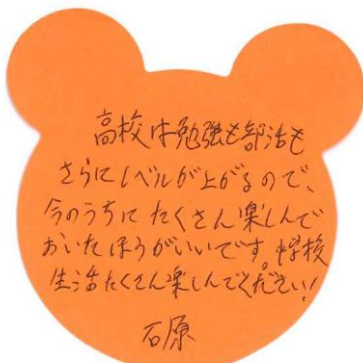 高校は勉強も部活も
さらにレベルが上がるので、
今のうちに たくさん楽しんで
おいたほうがいいです。中学校
生活たくさん楽しんでください!
石原